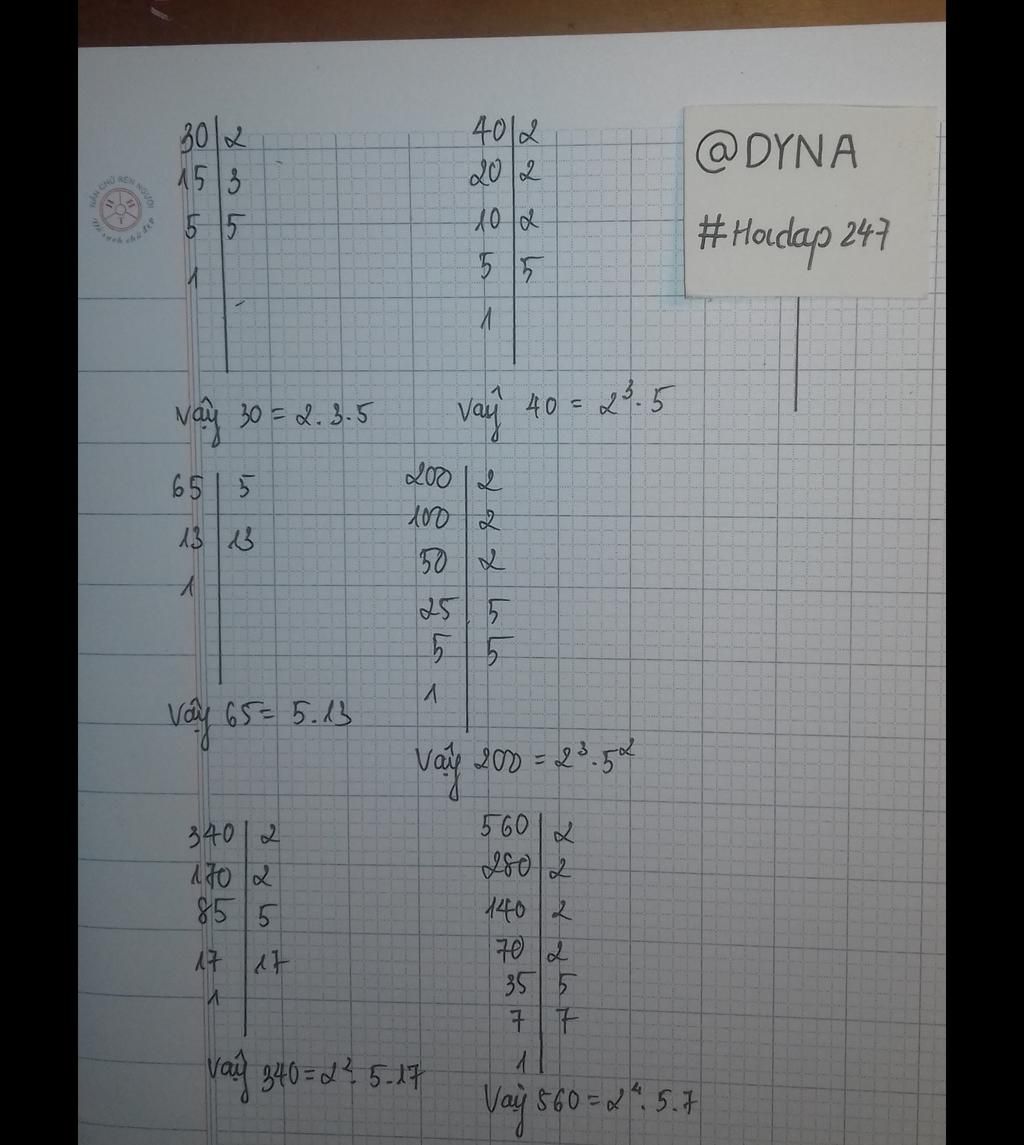 30 | 2
15 | 3
5 | 5
1
Vậy 30 = 2.3.5
40 | 2
20 | 2
10 | 2
5 | 5
1
Vậy 40 = 2³.5
@DYNA
#Hoidap247
NẮN CHỮ RÈN NGƯỜI
65 | 5
13 | 13
1
Vậy 65 = 5.13
200 | 2
100 | 2
50 | 2
25 | 5
5 | 5
1
Vậy 200 = 2³.5²
340 | 2
170 | 2
85 | 5
17 | 17
1
Vậy 340 = 2².5.17
560 | 2
280 | 2
140 | 2
70 | 2
35 | 5
7 | 7
1
Vậy 560 = 2⁴.5.7